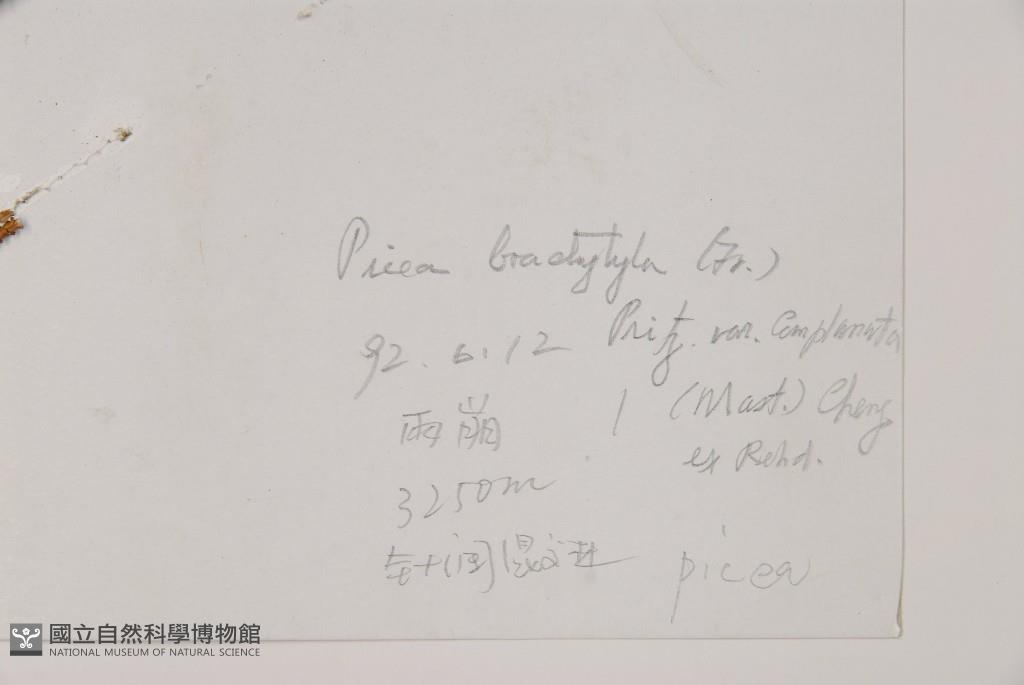 Picea brachytyla (Fr.)
Pritz. var. Complanata
92.6.12
(Mast.) Cheng
雨崩 1
ex Rehd.
3250m
針闊混交林
picea
國立自然科學博物館
NATIONAL MUSEUM OF NATURAL SCIENCE